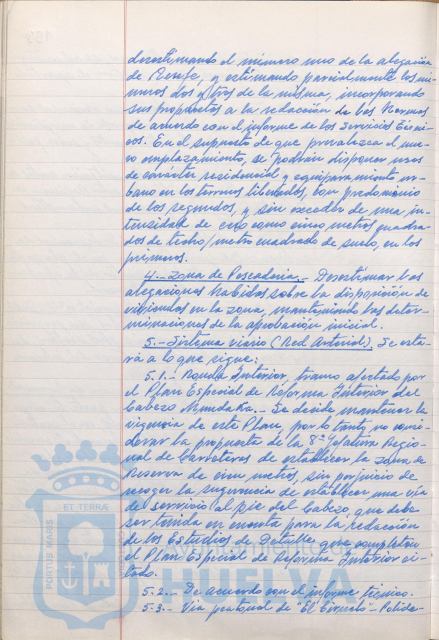 desestimando el número uno de la alegación
de Renfe, y estimando parcialmente los nú-
meros dos y tres de la misma, incorporando
sus propuestas a la redacción de las Normas
de acuerdo con el informe de los Servicios Técni-
cos. En el supuesto de que prevalezca el nue-
vo emplazamiento, se podrán disponer usos
de carácter residencial y equipamiento ur-
bano en los terrenos liberados, con predominio
de los segundos, y sin exceder de una in-
tensidad de cinco metros cuadra-
dos de techo/metro cuadrado de suelo, en los
primeros.
4.- Zona de Pescadería.- Desestimar las
alegaciones habidas sobre la disposición de
viviendas en la zona, manteniendo las deter-
minaciones de la aprobación inicial.
5.- Sistema viario (Red Arterial). Se esta-
rá a lo que sigue:
5.1.- Ronda Interior, tramo afectado por
el Plan Especial de Reforma Interior del
Cabezo Mundaka.- Se decide mantener la
vigencia de este Plan, por lo tanto, no consi-
derar la propuesta de la 8ª Jefatura Regio-
nal de Carreteras de establecer la zona de
Reserva de cinco metros, sin perjuicio de
recoger la sugerencia de establecer una vía
de servicio al pie del Cabezo, que debe
ser tenida en cuenta para la redacción
de los Estudios de Detalle que completan
el Plan Especial de Reforma Interior ci-
tado.
5.2.- De acuerdo con el informe técnico.
5.3.- Vía peatonal de "El Ciruelo"-Polide-
PORTUS MARIS
ET TERRAE
HUELVA